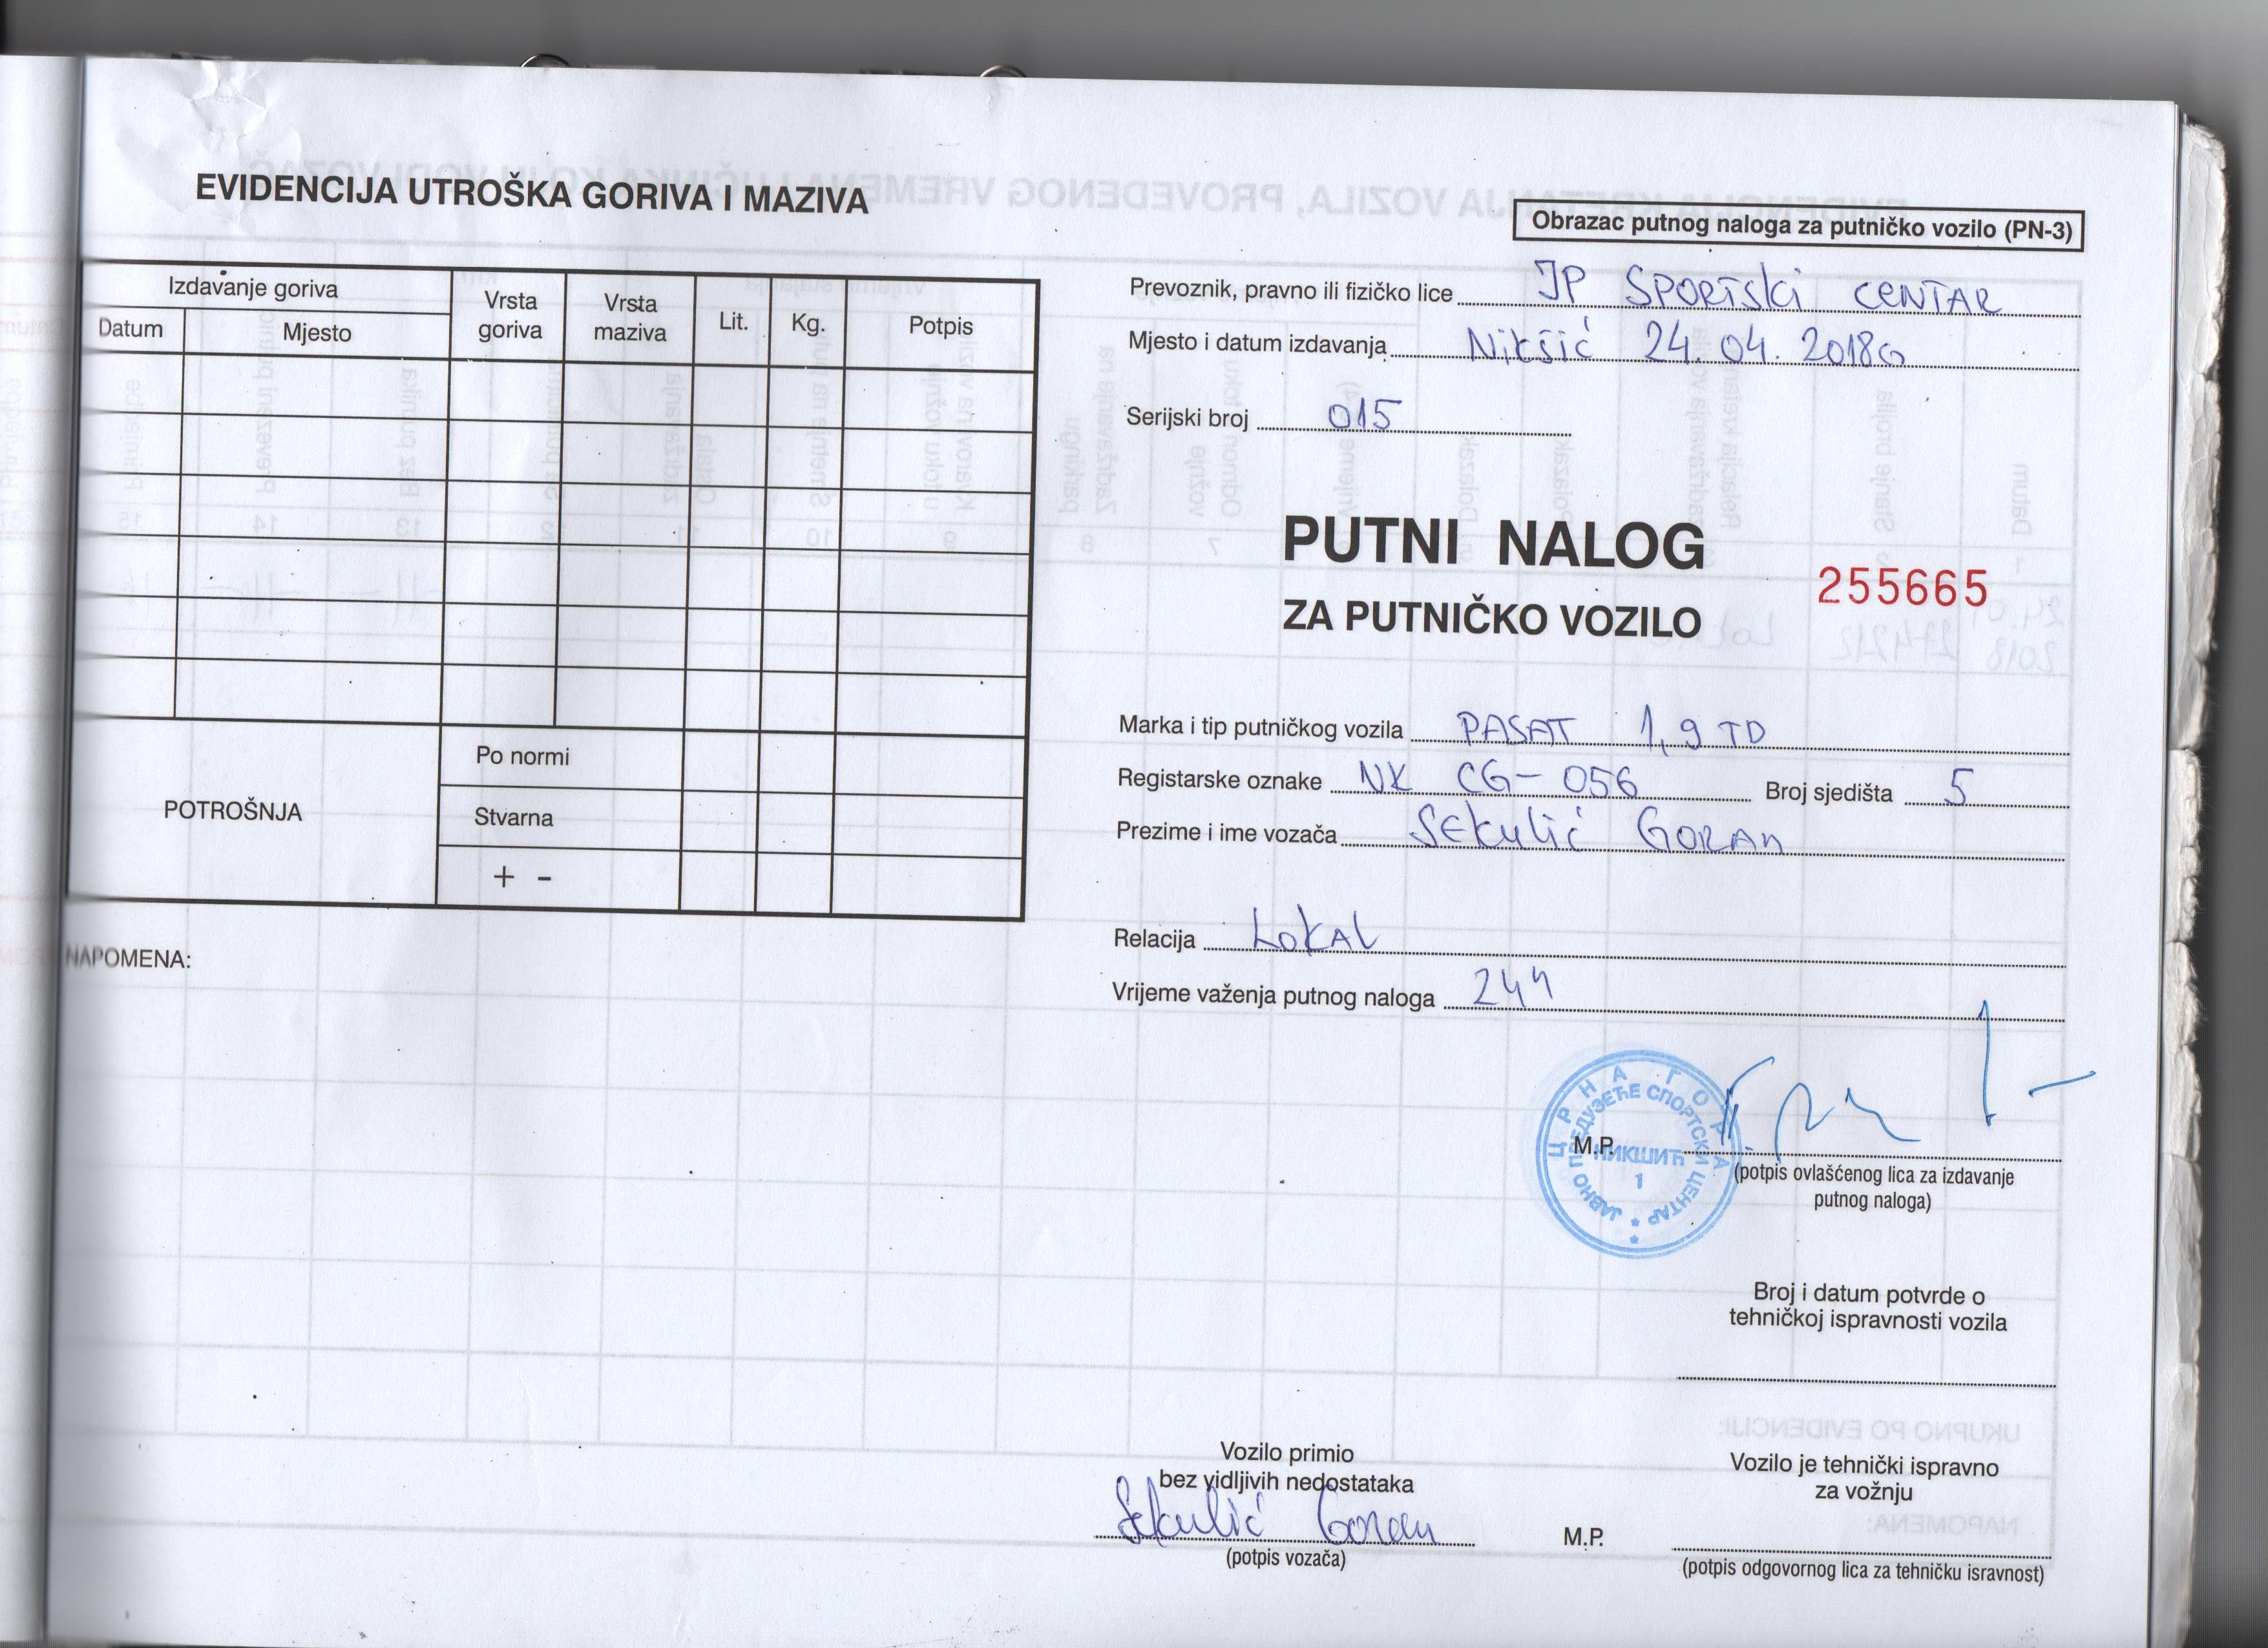 EVIDENCIJA UTROŠKA GORIVA I MAZIVA
Izdavanje goriva
Datum
Mjesto
Vrsta goriva
Vrsta maziva
Lit.
Kg.
Potpis
POTROŠNJA
Po normi
Stvarna
+ -
NAPOMENA:
Obrazac putnog naloga za putničko vozilo (PN-3)
Prevoznik, pravno ili fizičko lice JP SPORTSKI CENTAR
Mjesto i datum izdavanja Nikšić 24.04.2018G
Serijski broj 015
PUTNI NALOG
255665
ZA PUTNIČKO VOZILO
Marka i tip putničkog vozila PASAT 1,9 TD
Registarske oznake NK CG-056 Broj sjedišta 5
Prezime i ime vozača SEKULIĆ GORAN
Relacija LOKAL
Vrijeme važenja putnog naloga 24h
ЦРНА ГОРА
ЈАВНО ПРЕДУЗЕЋЕ СПОРТСКИ ЦЕНТАР
НИКШИЋ
1
M.P.
(potpis ovlašćenog lica za izdavanje
putnog naloga)
Broj i datum potvrde o
tehničkoj ispravnosti vozila
Vozilo primio
bez vidljivih nedostataka
Sekulić Goran
(potpis vozača)
Vozilo je tehnički ispravno
za vožnju
M.P.
(potpis odgovornog lica za tehničku isravnost)